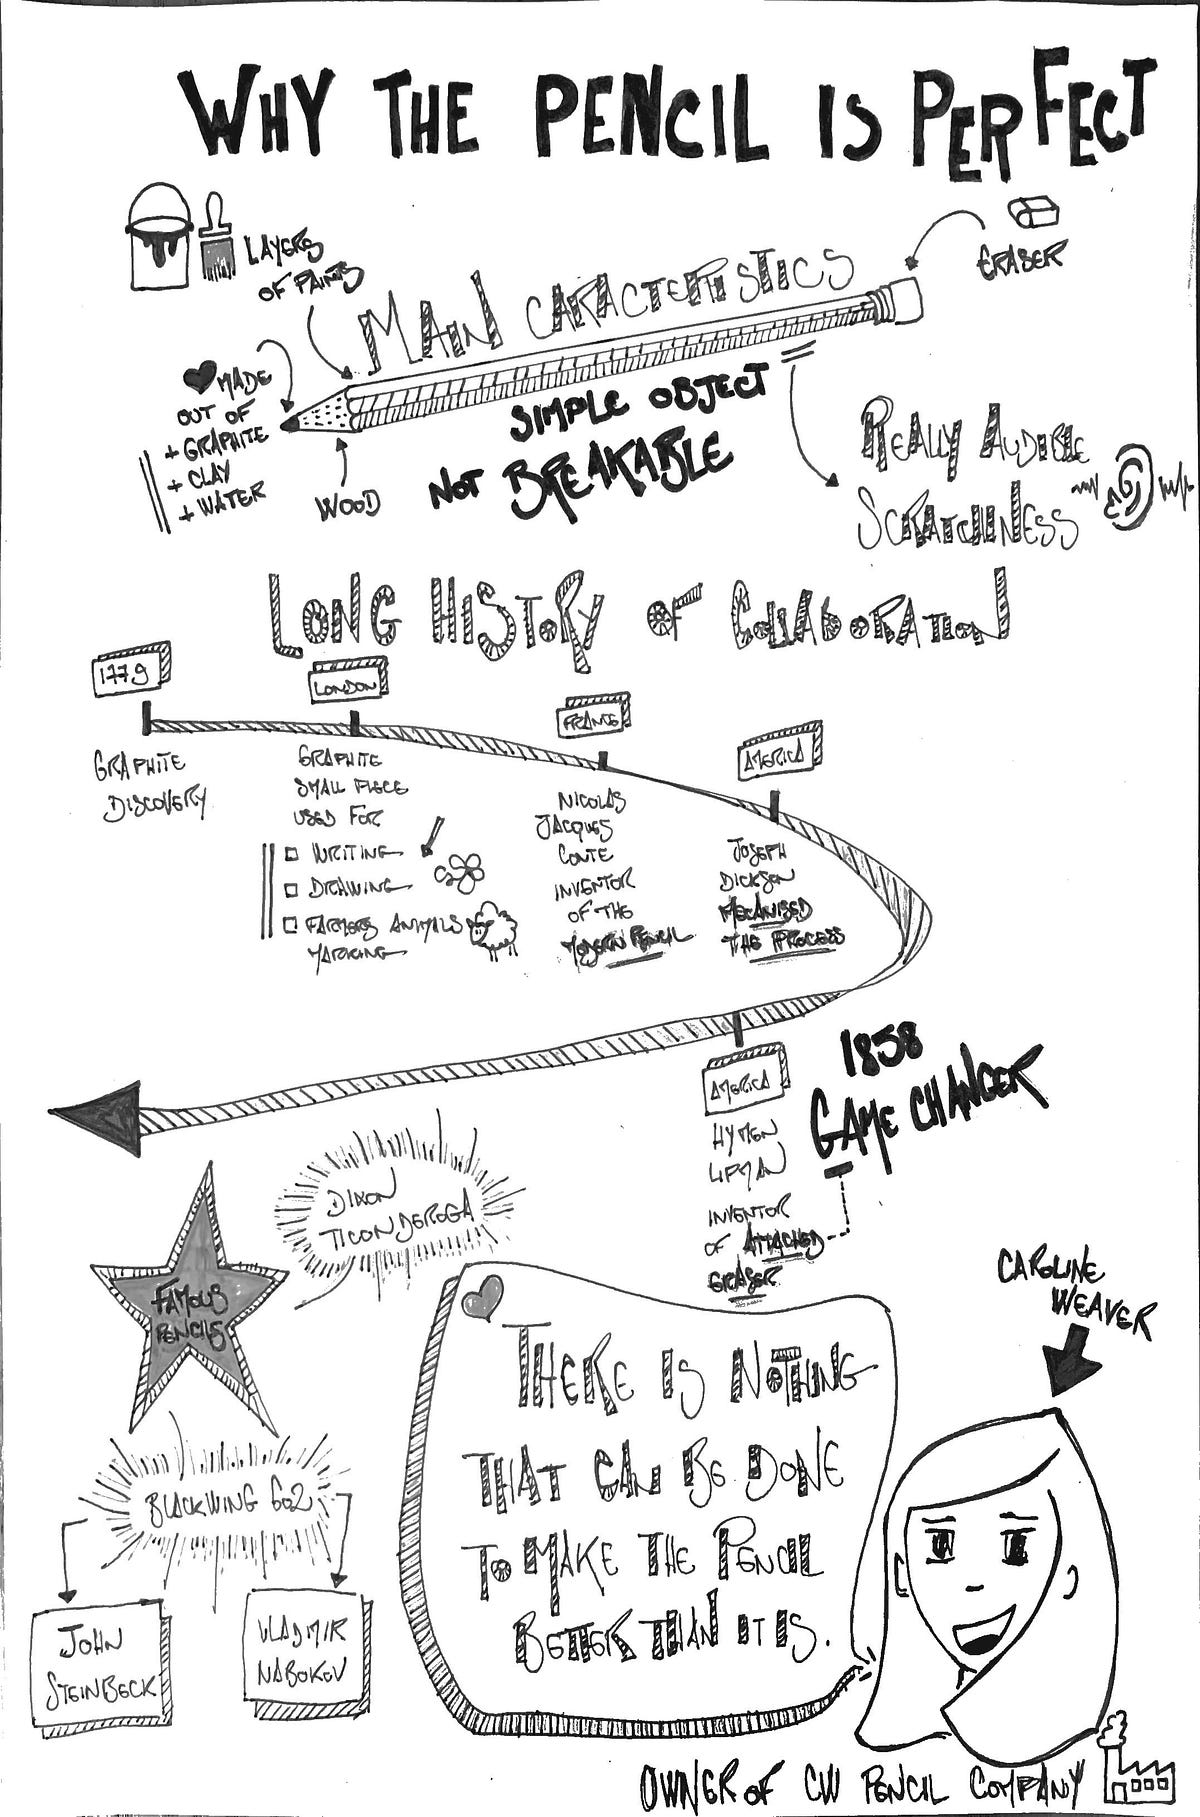 WHY THE PENCIL IS PERFECT
LAYERS
OF PAINTS
ERASER
MAIN CARACTERISTICS
MADE
OUT OF
+ GRAPHITE
+ CLAY
+ WATER
WOOD
SIMPLE OBJECT
NOT BREAKABLE
REALLY AUDIBLE
SCRATCHINESS
LONG HISTORY OF COLLABORATION
1779
GRAPHITE
DISCOVERY
LONDON
GRAPHITE
SMALL PIECE
USED FOR
WRITING
DRAWING
FARMERS ANIMALS
MARKING
FRANCE
NICOLAS
JACQUES
CONTE
INVENTOR
OF THE
MODERN PENCIL
AMERICA
JOSEPH
DICKSON
MECANISED
THE PROCESS
AMERICA
HYMEN
LIPMAN
INVENTOR
OF ATTACHED
ERASER
1858
GAME CHANGER
DIXON
TICONDEROGA
FAMOUS
PENCILS
BLACKWING 602
JOHN
STEINBECK
VLADMIR
NABOKOV
THERE IS NOTHING
THAT CAN BE DONE
TO MAKE THE PENCIL
BETTER THAN IT IS.
CAROLINE
WEAVER
OWNER OF CW PENCIL COMPANY